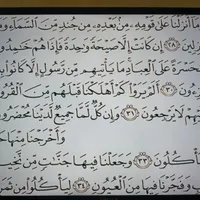 مَا أَنزَلْنَا عَلَىٰ قَوْمِهِ مِنۢ بَعْدِهِ مِن جُندٍ مِّنَ السَّمَاءِ وَمَا
نزِلِينَ ۝٢٨ إِن كَانَتْ إِلَّا صَيْحَةً وَٰحِدَةً فَإِذَا هُمْ خَٰمِدُو
حَسْرَةً عَلَى الْعِبَادِ مَا يَأْتِيهِم مِّن رَّسُولٍ إِلَّا كَانُوا بِهِ
۝٣٠ أَلَمْ يَرَوْا كَمْ أَهْلَكْنَا قَبْلَهُم مِّنَ الْقُرُو
هِمْ لَا يَرْجِعُونَ ۝٣١ وَإِن كُلٌّ لَّمَّا جَمِيعٌ لَّدَيْنَا مُحْضَرُو
وَأَخْرَجْنَا مِنْهَا
أْكُلُونَ ۝٣٣ وَجَعَلْنَا فِيهَا جَنَّٰتٍ مِّن نَّخِي
بٍ وَفَجَّرْنَا فِيهَا مِنَ الْعُيُونِ ۝٣٤ لِيَأْكُلُوا مِن ثَمَرِ